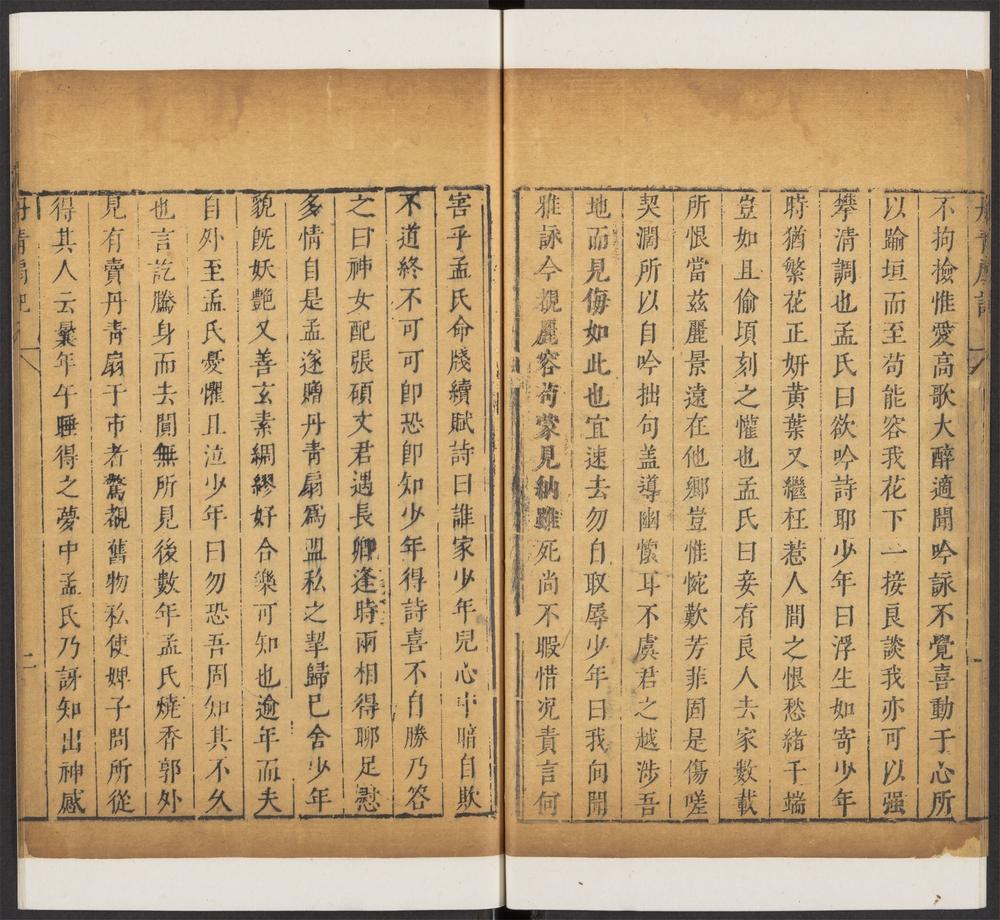 丹青扇記
一
不拘撿惟愛高歌大醉適聞吟詠不覺喜動于心所
以踰垣而至苟能容我花下一接良談我亦可以强
攀清調也孟氏曰欲吟詩耶少年曰浮生如寄少年
時猶繁花正妍黄葉又繼枉惹人間之恨愁緒千端
豈如且偷頃刻之懽也孟氏曰妾有良人去家數載
所恨當兹麗景遠在他鄉豈惟惋歎芳菲固是傷嗟
契濶所以自吟拙句盖導幽懷耳不虞君之越涉吾
地而見侮如此也宜速去勿自取辱少年曰我向聞
雅詠今覩麗容苟蒙見納雖死尚不暇惜况責言何
害乎孟氏命牋續賦詩曰誰家少年兒心中暗自欺
不道終不可可卽恐郎知少年得詩喜不自勝乃答
之曰神女配張碩文君遇長卿逢時兩相得聊足慰
多情自是孟遂贈丹青扇爲盟私之挈歸已舍少年
貌旣妖艷又善玄素綢繆好合樂可知也逾年而夫
自外至孟氏憂懼且泣少年曰勿恐吾固知其不久
也言訖騰身而去閴無所見後數年孟氏燒香郭外
見有賣丹青扇于市者驚覩舊物私使婢子問所從
得其人云曩年午睡得之夢中孟氏乃訝知出神感
丹青扇記
二